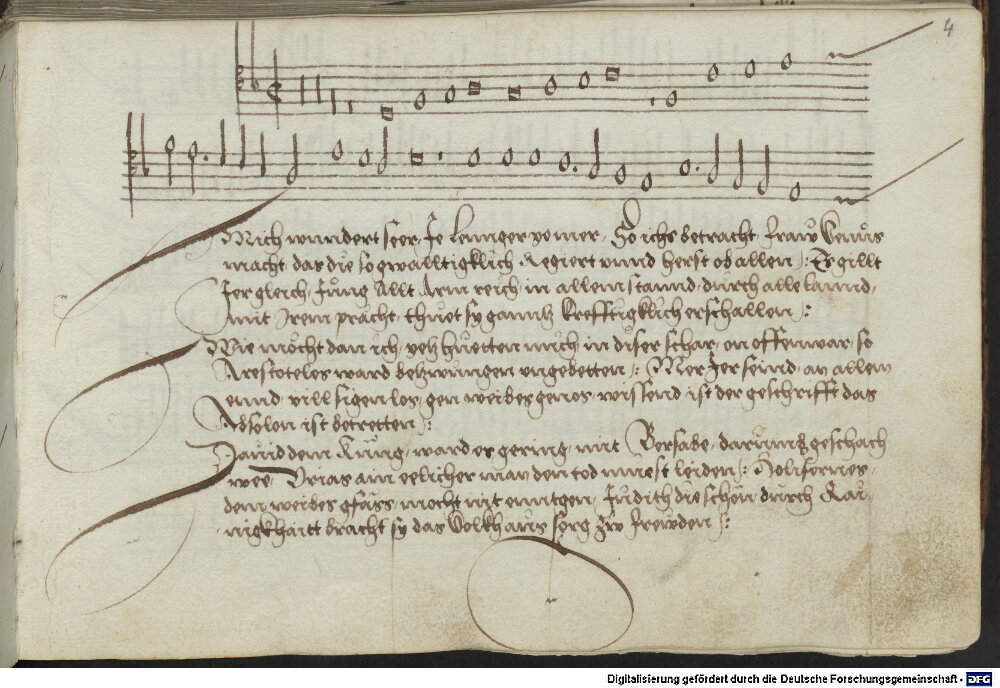 4
Mich wundert seer, Je lennger yemer, So ichs betracht, fraw Venus
macht, das die so gwalltigklich Regiert vnnd herst ob allen /: Es gillt
Jer gleich, Jung Allt Arm reich, in allem stannd, durch alle lannd,
mit Irem pracht, thuet sy ganntz krefftigklich erschallen /:
Wie möcht dan ich, yetz huetten mich, in diser schar, on offenwar, so
Arestoteles ward bezwungen vngebetten /: Mer Jer seind, an allem
ennd vill sigenlos, gen weibes genos, wissend ist der geschrifft das
Absolon ist betretten /:
Dauid dem Küng, ward er gering, mit Bersabe, darumb geschach
wee Vrias ain eelicher man den tod muest leiden /: Holifernes,
dem weibes gfäss, mocht nit enntgen, Judith die schon durch Rai-
nigkhait bracht sy das Volkh aus sorg zw frewden /:
Digitalisierung gefördert durch die Deutsche Forschungsgemeinschaft - DFG